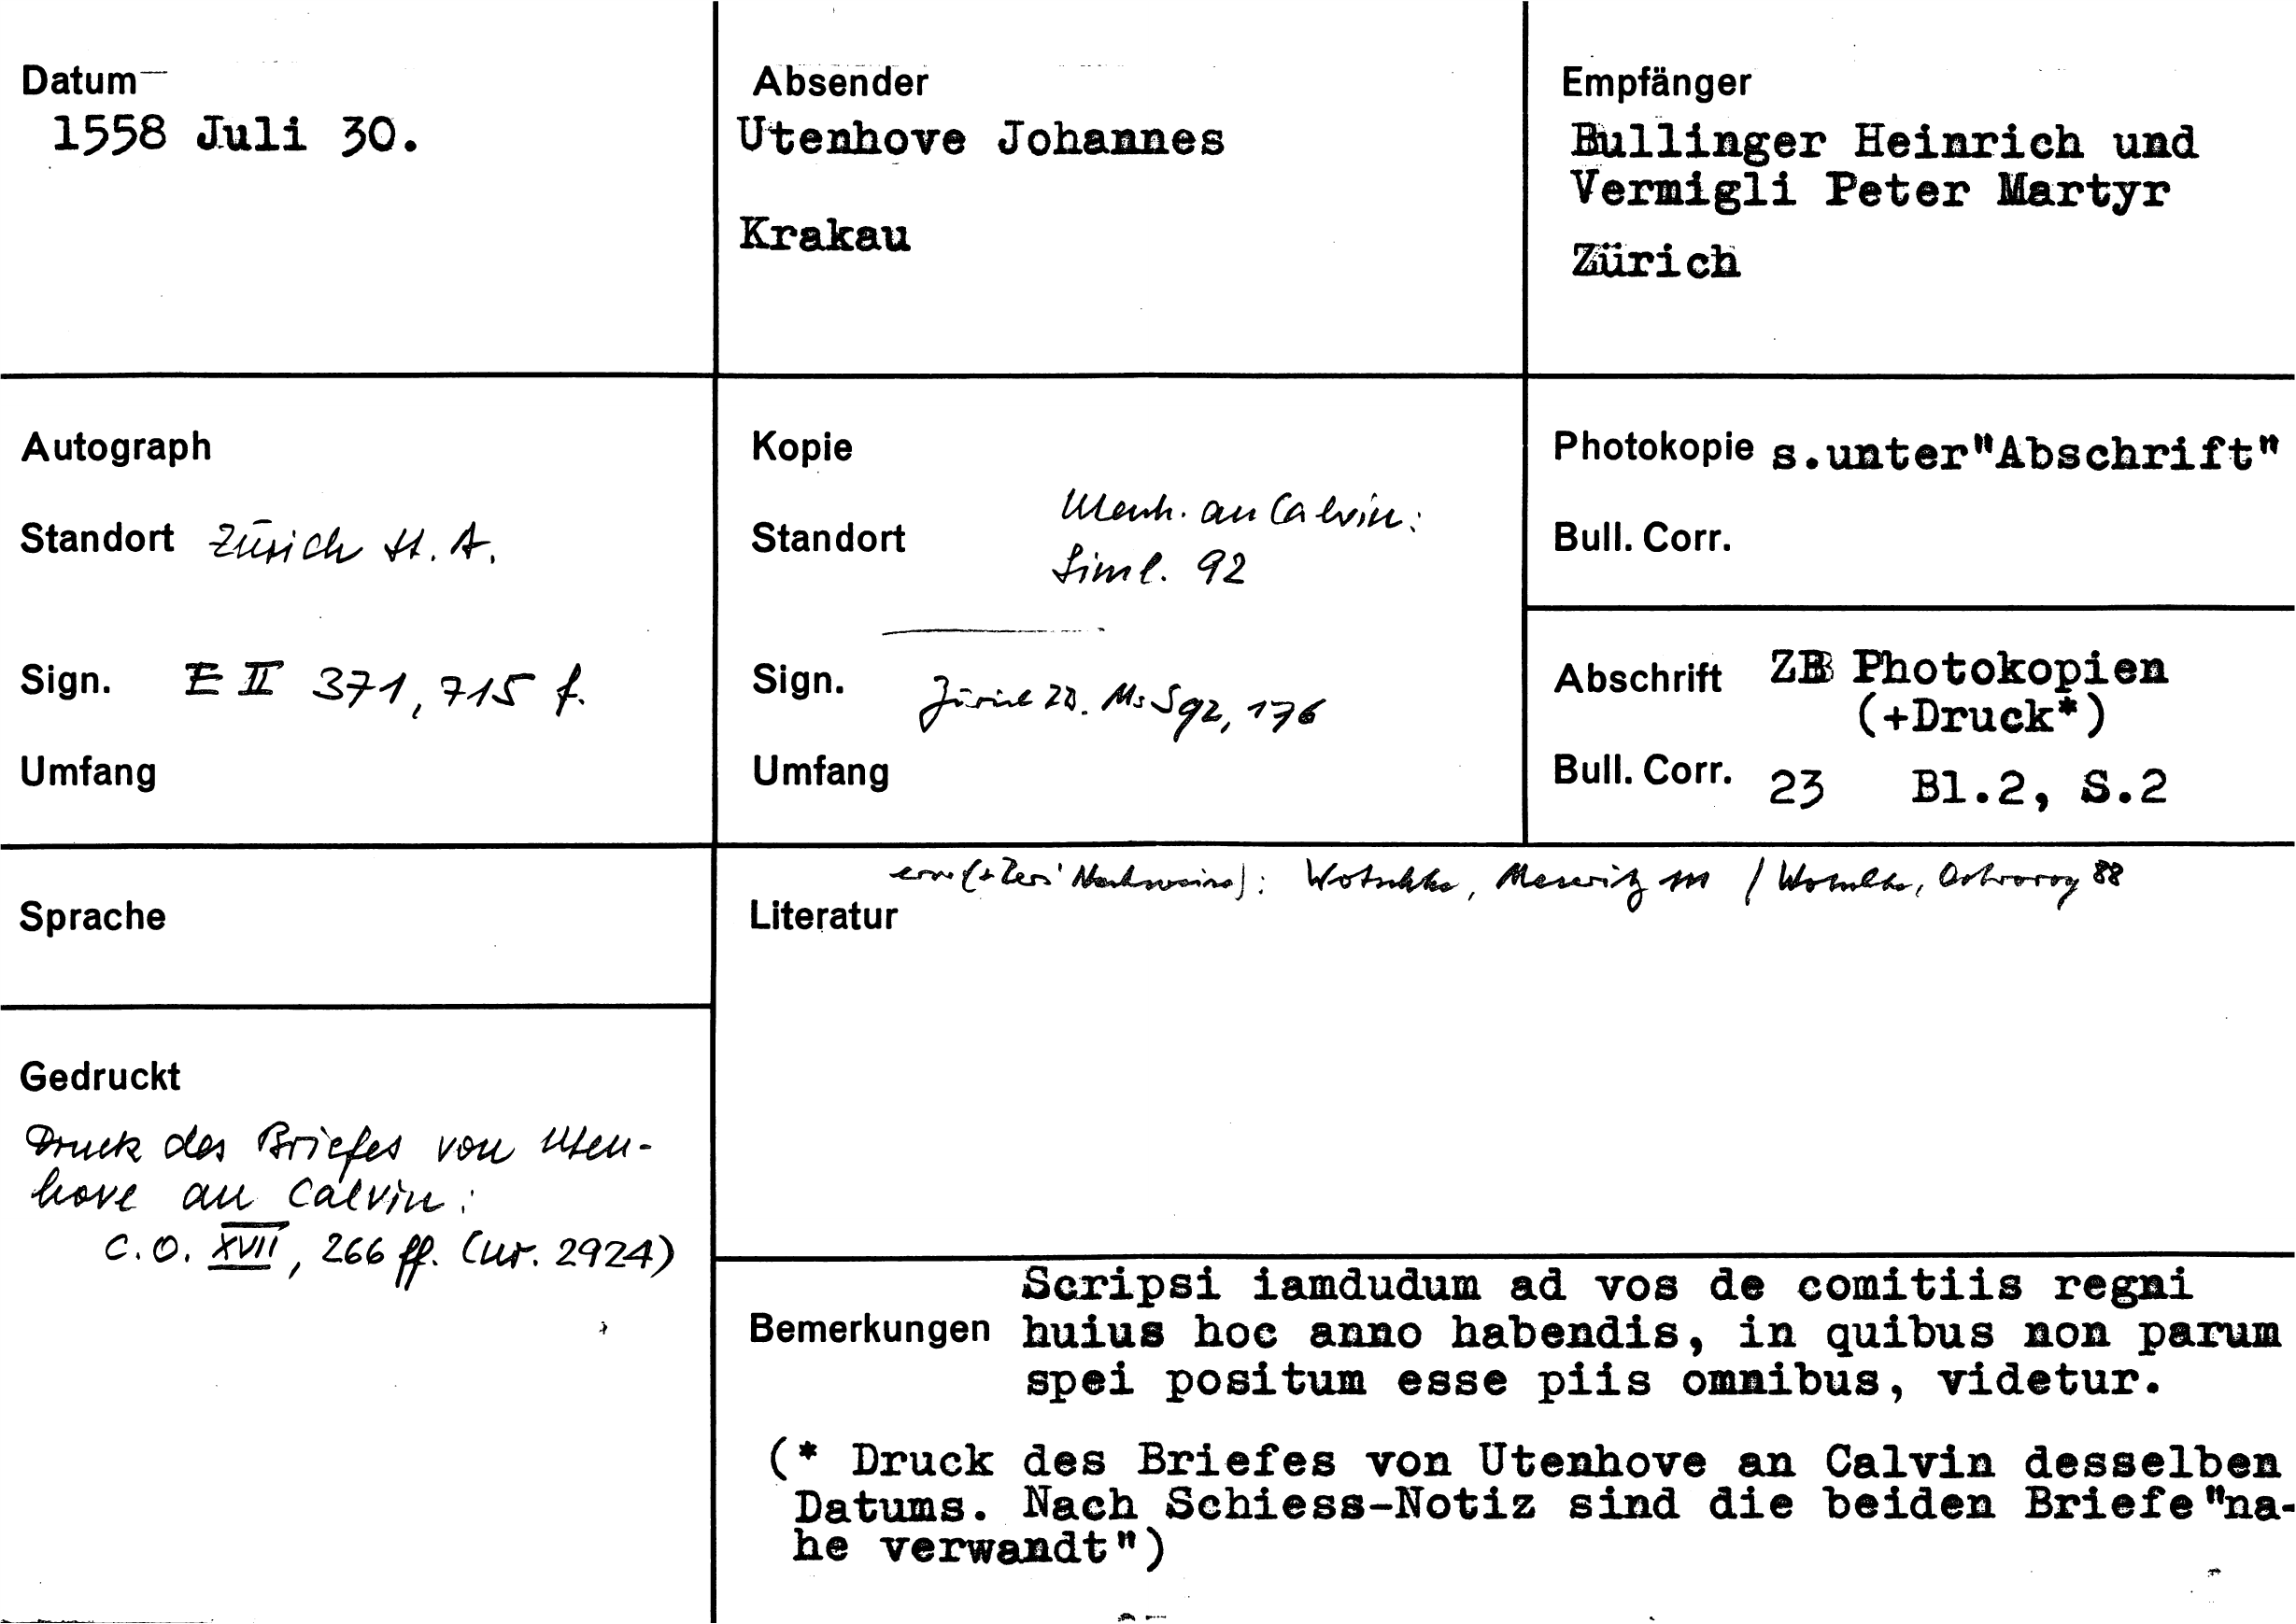 Datum
1558 Juli 30.
Absender
Utenhove Johannes
Krakau
Empfänger
Bullinger Heinrich und
Vermigli Peter Martyr
Zürich
Autograph
Standort Zürich St. A.
Sign. E II 371, 715 f.
Umfang
Kopie
Utenh. an Calvin:
Standort
Siml. 92
Sign. Zürich ZB. Ms S 92, 176
Umfang
Photokopie s.unter"Abschrift"
Bull. Corr.
Abschrift ZB Photokopien
(+Druck*)
Bull. Corr. 23 Bl.2, S.2
Sprache
Gedruckt
Druck des Briefes von Uten-
hove an Calvin:
C.O. XVII, 266 ff. (nr. 2924)
Wotschke, / Wotschke, 88
Literatur
Scripsi iamdudum ad vos de comitiis regni
Bemerkungen huius hoc anno habendis, in quibus non parum
spei positum esse piis omnibus, videtur.
(* Druck des Briefes von Utenhove an Calvin desselben
Datums. Nach Schiess-Notiz sind die beiden Briefe"na-
he verwandt")